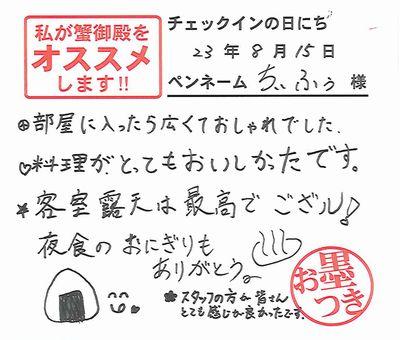 私が蟹御殿を
オススメ
します!!
チェックインの日にち
23年8月15日
ペンネーム ちぃふぅ 様
部屋に入ったら広くておしゃれでした。
♡料理がとってもおいしかったです。
*客室露天は最高でござル♪
夜食のおにぎりも
ありがとう。
*スタッフの方が皆さん
とても感じが良かったです。
お墨つき